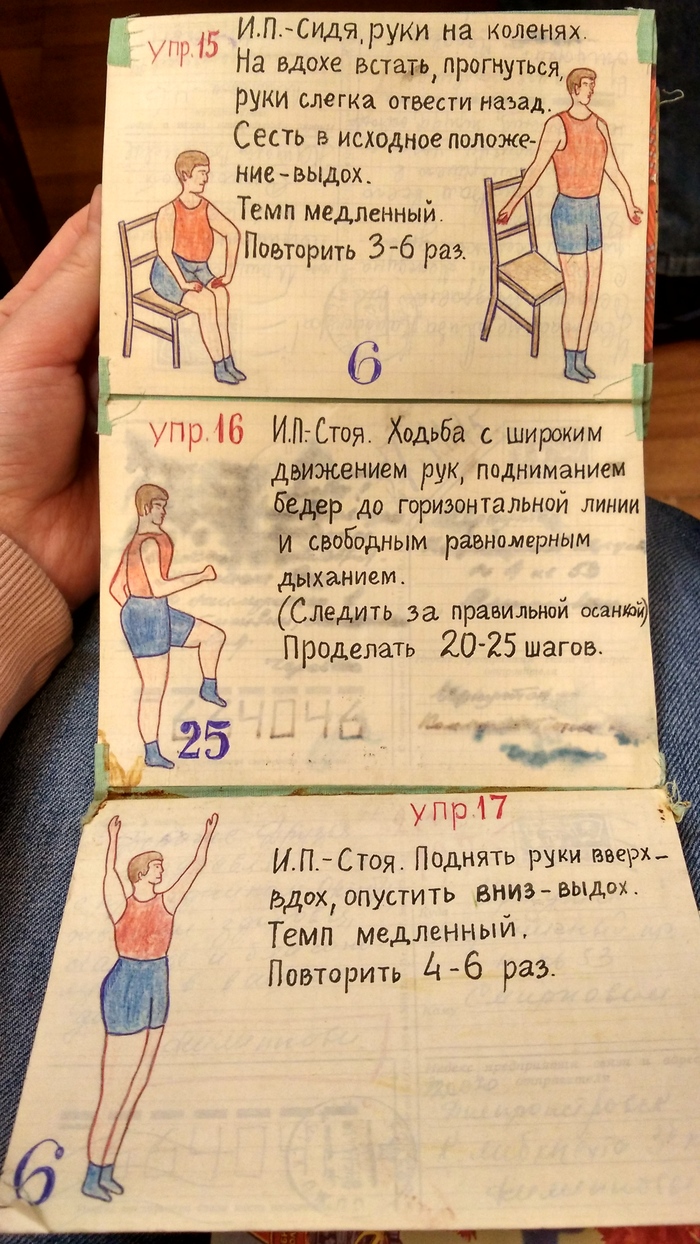 упр.15
И.П.-Сидя, руки на коленях.
На вдохе встать, прогнуться,
руки слегка отвести назад.
Сесть в исходное положе-
ние-выдох.
Темп медленный.
Повторить 3-6 раз.
6
упр.16
И.П.-Стоя. Ходьба с широким
движением рук, подниманием
бедер до горизонтальной линии
и свободным равномерным
дыханием.
(Следить за правильной осанкой)
Проделать 20-25 шагов.
25
упр.17
И.П.-Стоя. Поднять руки вверх-
вдох, опустить вниз-выдох.
Темп медленный.
Повторить 4-6 раз.
6